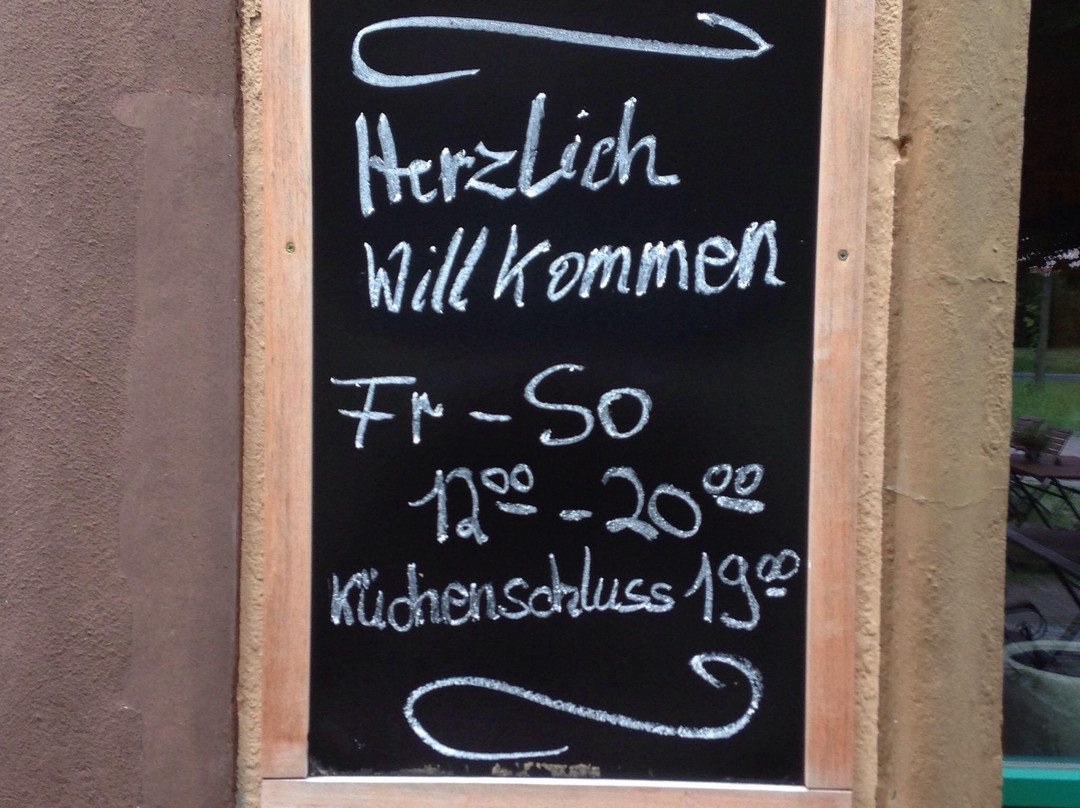 Herzlich
Willkommen
Fr - So
12⁰⁰ - 20⁰⁰
Küchenschluss 19⁰⁰